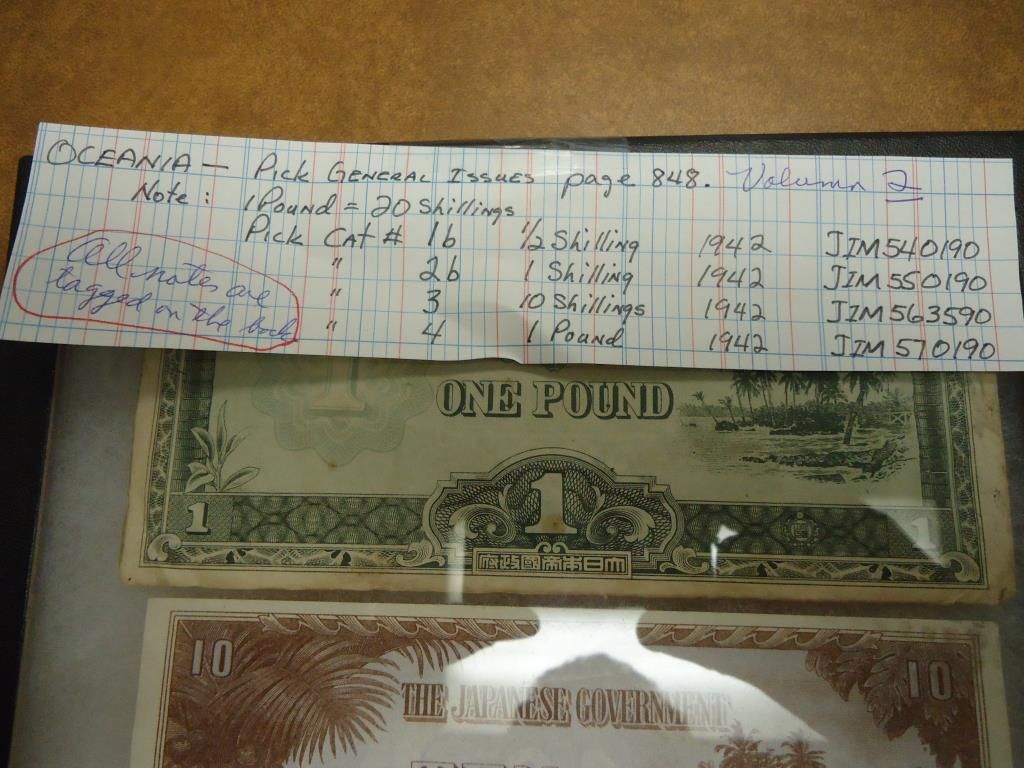 OCEANIA — PICK GENERAL ISSUES page 848. Volumn 2
Note : 1 Pound = 20 Shillings
Pick CAT # 1b 1/2 Shilling 1942 JIM540190
" 2b 1 Shilling 1942 JIM550190
" 3 10 Shillings 1942 JIM563590
" 4 1 Pound 1942 JIM570190
All notes are
tagged on the back
1
ONE POUND
1 1 1
府政國帝本日大
10 10
THE JAPANESE GOVERNMENT